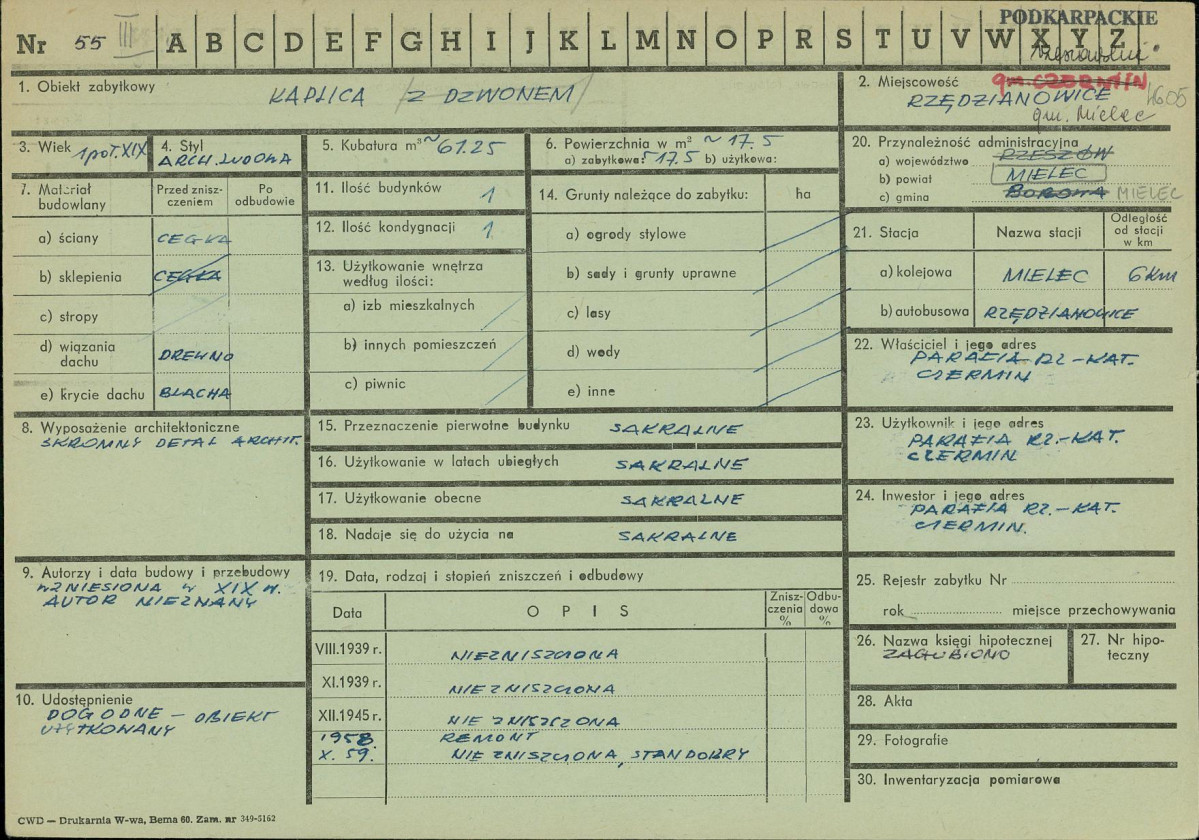 PODKARPACKIE
Nr 55 III A B C D E F G H I J K L M N O P R S T U V W X Y Z
rzeszowskie
1. Obiekt zabytkowy
KAPLICA Z DZWONEM
2. Miejscowość gm. CZERMIN
RZĘDZIANOWICE
gm. Mielec
3. Wiek 1 poł. XIX
4. Styl
ARCH. LUDOWA
5. Kubatura m³ ~61.25
6. Powierzchnia w m² ~17.5
a) zabytkowa: 17.5 b) użytkowa:
7. Materiał budowlany
Przed zniszczeniem
Po odbudowie
a) ściany CEGŁA
b) sklepienia CEGŁA
c) stropy
d) wiązania dachu DREWNO
e) krycie dachu BLACHA
8. Wyposażenie architektoniczne
SKROMNY DETAL ARCHIT.
9. Autorzy i data budowy i przebudowy
WZNIESIONA W XIX W.
AUTOR NIEZNANY
10. Udostępnienie
DOGODNE – OBIEKT
UŻYTKOWANY
11. Ilość budynków 1
12. Ilość kondygnacji 1
13. Użytkowanie wnętrza
według ilości:
a) izb mieszkalnych
b) innych pomieszczeń
c) piwnic
14. Grunty należące do zabytku: ha
a) ogrody stylowe
b) sady i grunty uprawne
c) lasy
d) wody
e) inne
15. Przeznaczenie pierwotne budynku SAKRALNE
16. Użytkowanie w latach ubiegłych SAKRALNE
17. Użytkowanie obecne SAKRALNE
18. Nadaje się do użycia na SAKRALNE
19. Data, rodzaj i stopień zniszczeń i odbudowy
Data
OPIS
Zniszczenia %
Odbudowa %
VIII.1939 r. NIEZNISZCZONA
XI.1939 r. NIEZNISZCZONA
XII.1945 r. NIE ZNISZCZONA
1958. REMONT
X. 59. NIE ZNISZCZONA, STAN DOBRY
20. Przynależność administracyjna
a) województwo RZESZÓW
b) powiat MIELEC
c) gmina BOROWA MIELEC
21. Stacja
Nazwa stacji
Odległość
od stacji
w km
a) kolejowa MIELEC 6 Km
b) autobusowa RZĘDZIANOWICE
22. Właściciel i jego adres
PARAFIA RZ.-KAT.
CZERMIN
23. Użytkownik i jego adres
PARAFIA RZ.-KAT.
CZERMIN
24. Inwestor i jego adres
PARAFIA RZ.-KAT.
CZERMIN.
25. Rejestr zabytku Nr
rok miejsce przechowywania
26. Nazwa księgi hipotecznej
ZAGUBIONO
27. Nr hipoteczny
28. Akta
29. Fotografie
30. Inwentaryzacja pomiarowa
CWD — Drukarnia W-wa, Bema 60. Zam. nr 349-5162